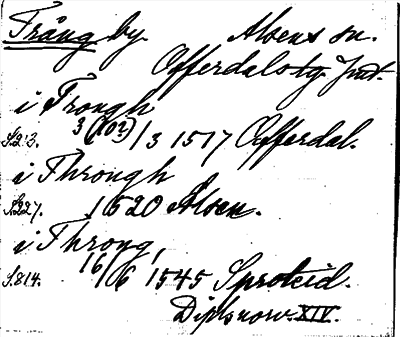 Trångby. Alsens sn.
Offerdals tg. Jmt.
i Trongh
S.213. 3 (10?)/3 1517 Offerdal.
i Throngh
S.227. 1520 Alsen.
i Throng,
S.814. 16/6 1545 Sproteid.
Dipl. norv. XIV.